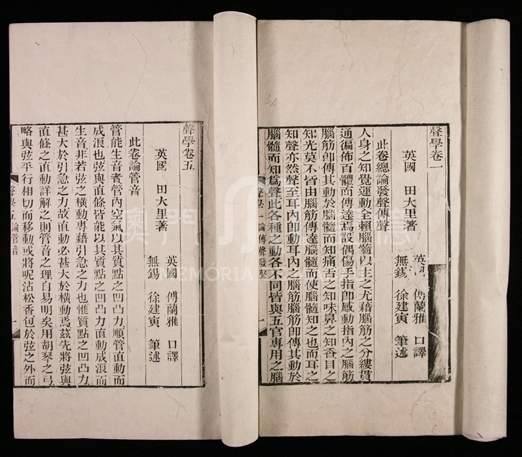 聲學卷一
英國 田大里著
英國 傅蘭雅 口譯
無錫 徐建寅 筆述
此卷總論發聲傳聲
人身之知覺運動全賴腦髓以主之尤藉腦筋之分縷貫
通徧佈百體而傳達焉設偶傷手指即感動指內之腦筋
腦筋即傳其動於腦髓而知痛舌之知味鼻之知香目之
知光莫不皆由腦筋傳達腦髓而使腦髓知之也而耳之
知聲亦然聲至耳內即動耳內之腦筋腦筋即傳其動於
腦髓而知為聲此各種之動各不同皆與五官專用之腦
聲學卷五
英國 田大里著
英國 傅蘭雅 口譯
無錫 徐建寅 筆述
此卷論管音
管能生音者管內空氣以其質點之凹凸力順管直動而
成浪也弦與直條皆能以其質點之凹凸力直動成浪而
生音非若弦之橫動專藉引急之力也惟質點之凹凸力
甚大於引急之力故直動必甚大於橫動焉茲先將弦與
直條之直動詳解之則管音之理自易明矣用胡琴之弓
略與弦平行相切而移動或將呢沾松香包於弦之外而
澳門
MEMÓRIA